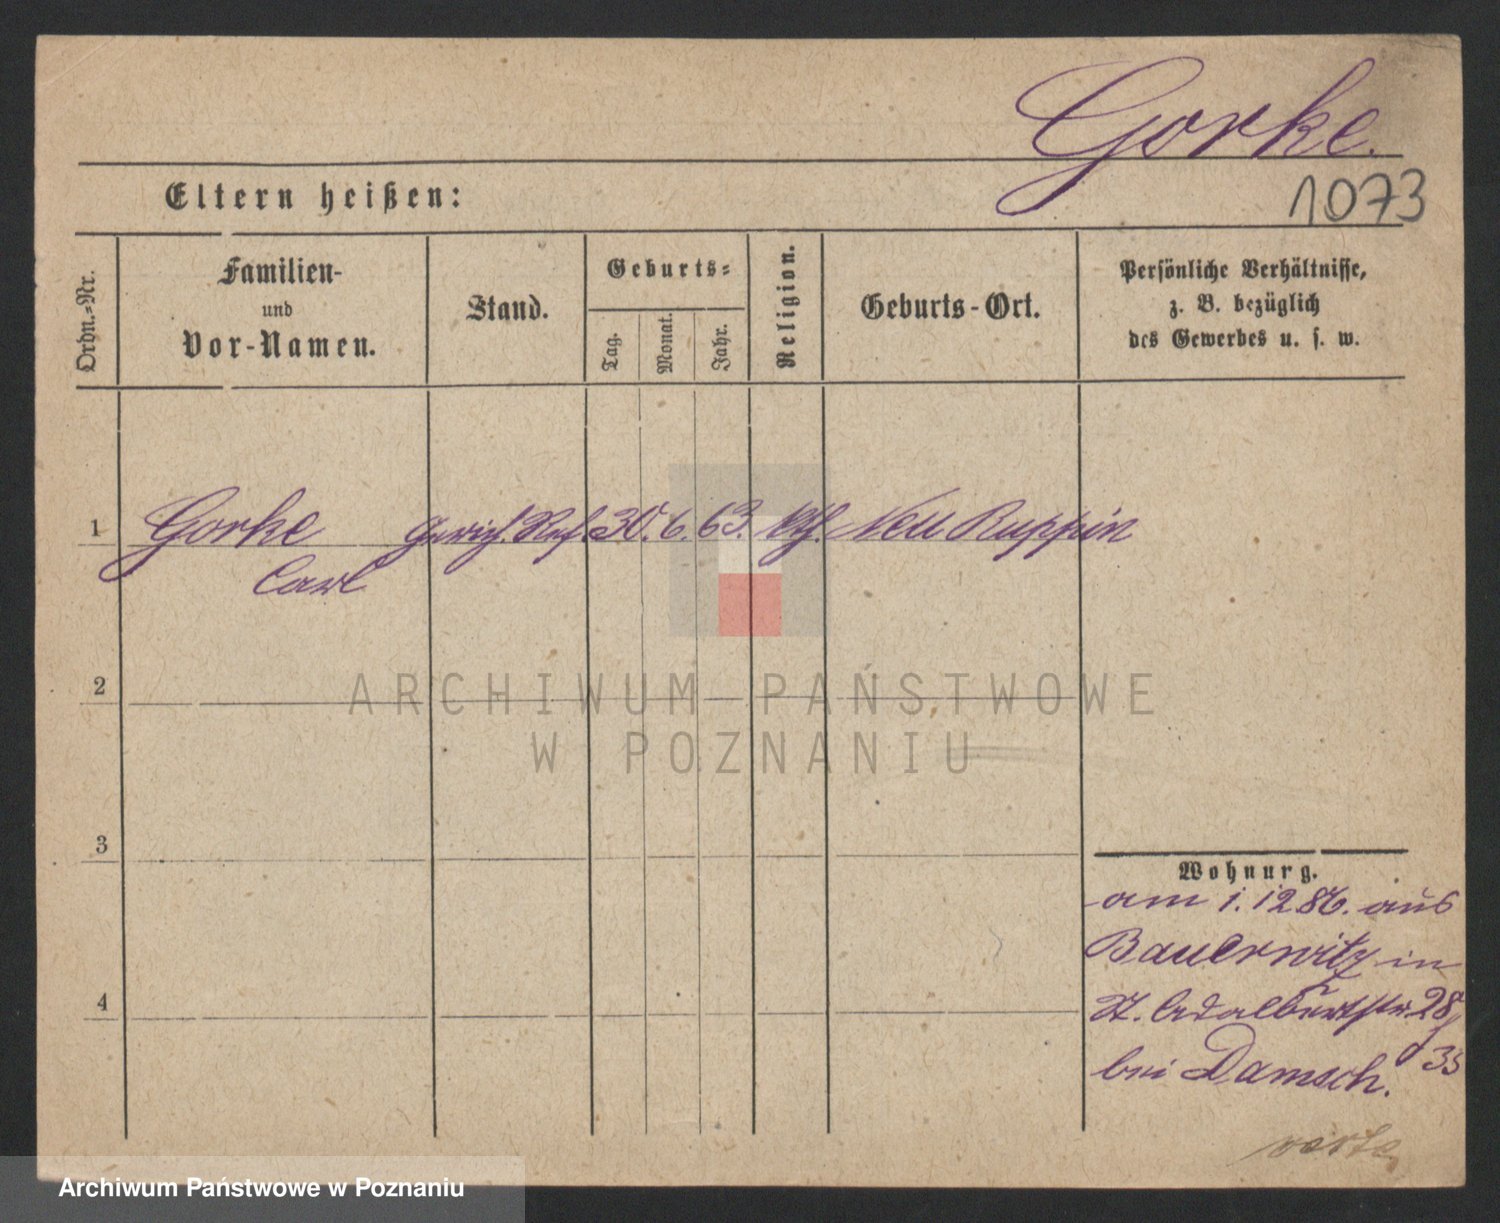 Gorke.
1073
Eltern heißen:
Ordn.-Nr.
Familien-
und
Vor-Namen.
Stand.
Geburts-
Tag.
Monat.
Jahr.
Religion.
Geburts-Ort.
Persönliche Verhältnisse,
z. B. bezüglich
des Gewerbes u. s. w.
1 Gorke Gerich. Ref. 30. 6. 63. kth. Neu Ruppin
Carl
2
ARCHIWUM PAŃSTWOWE
W POZNANIU
3
Wohnung.
am 1. 12 86. aus
Bauerwitz in
St. Adalbertstr. 28
bei Damsch.
4
Archiwum Państwowe w Poznaniu